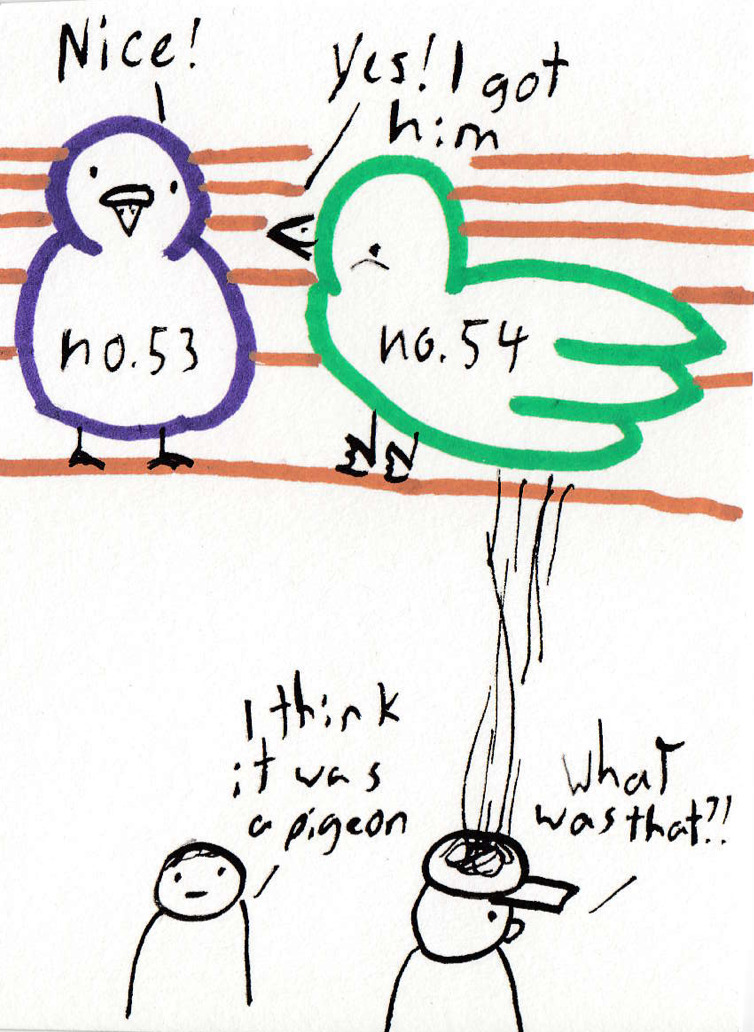 Nice!
Yes! I got
him
no.53
no.54
I think
it was
a pigeon
What
was that?!